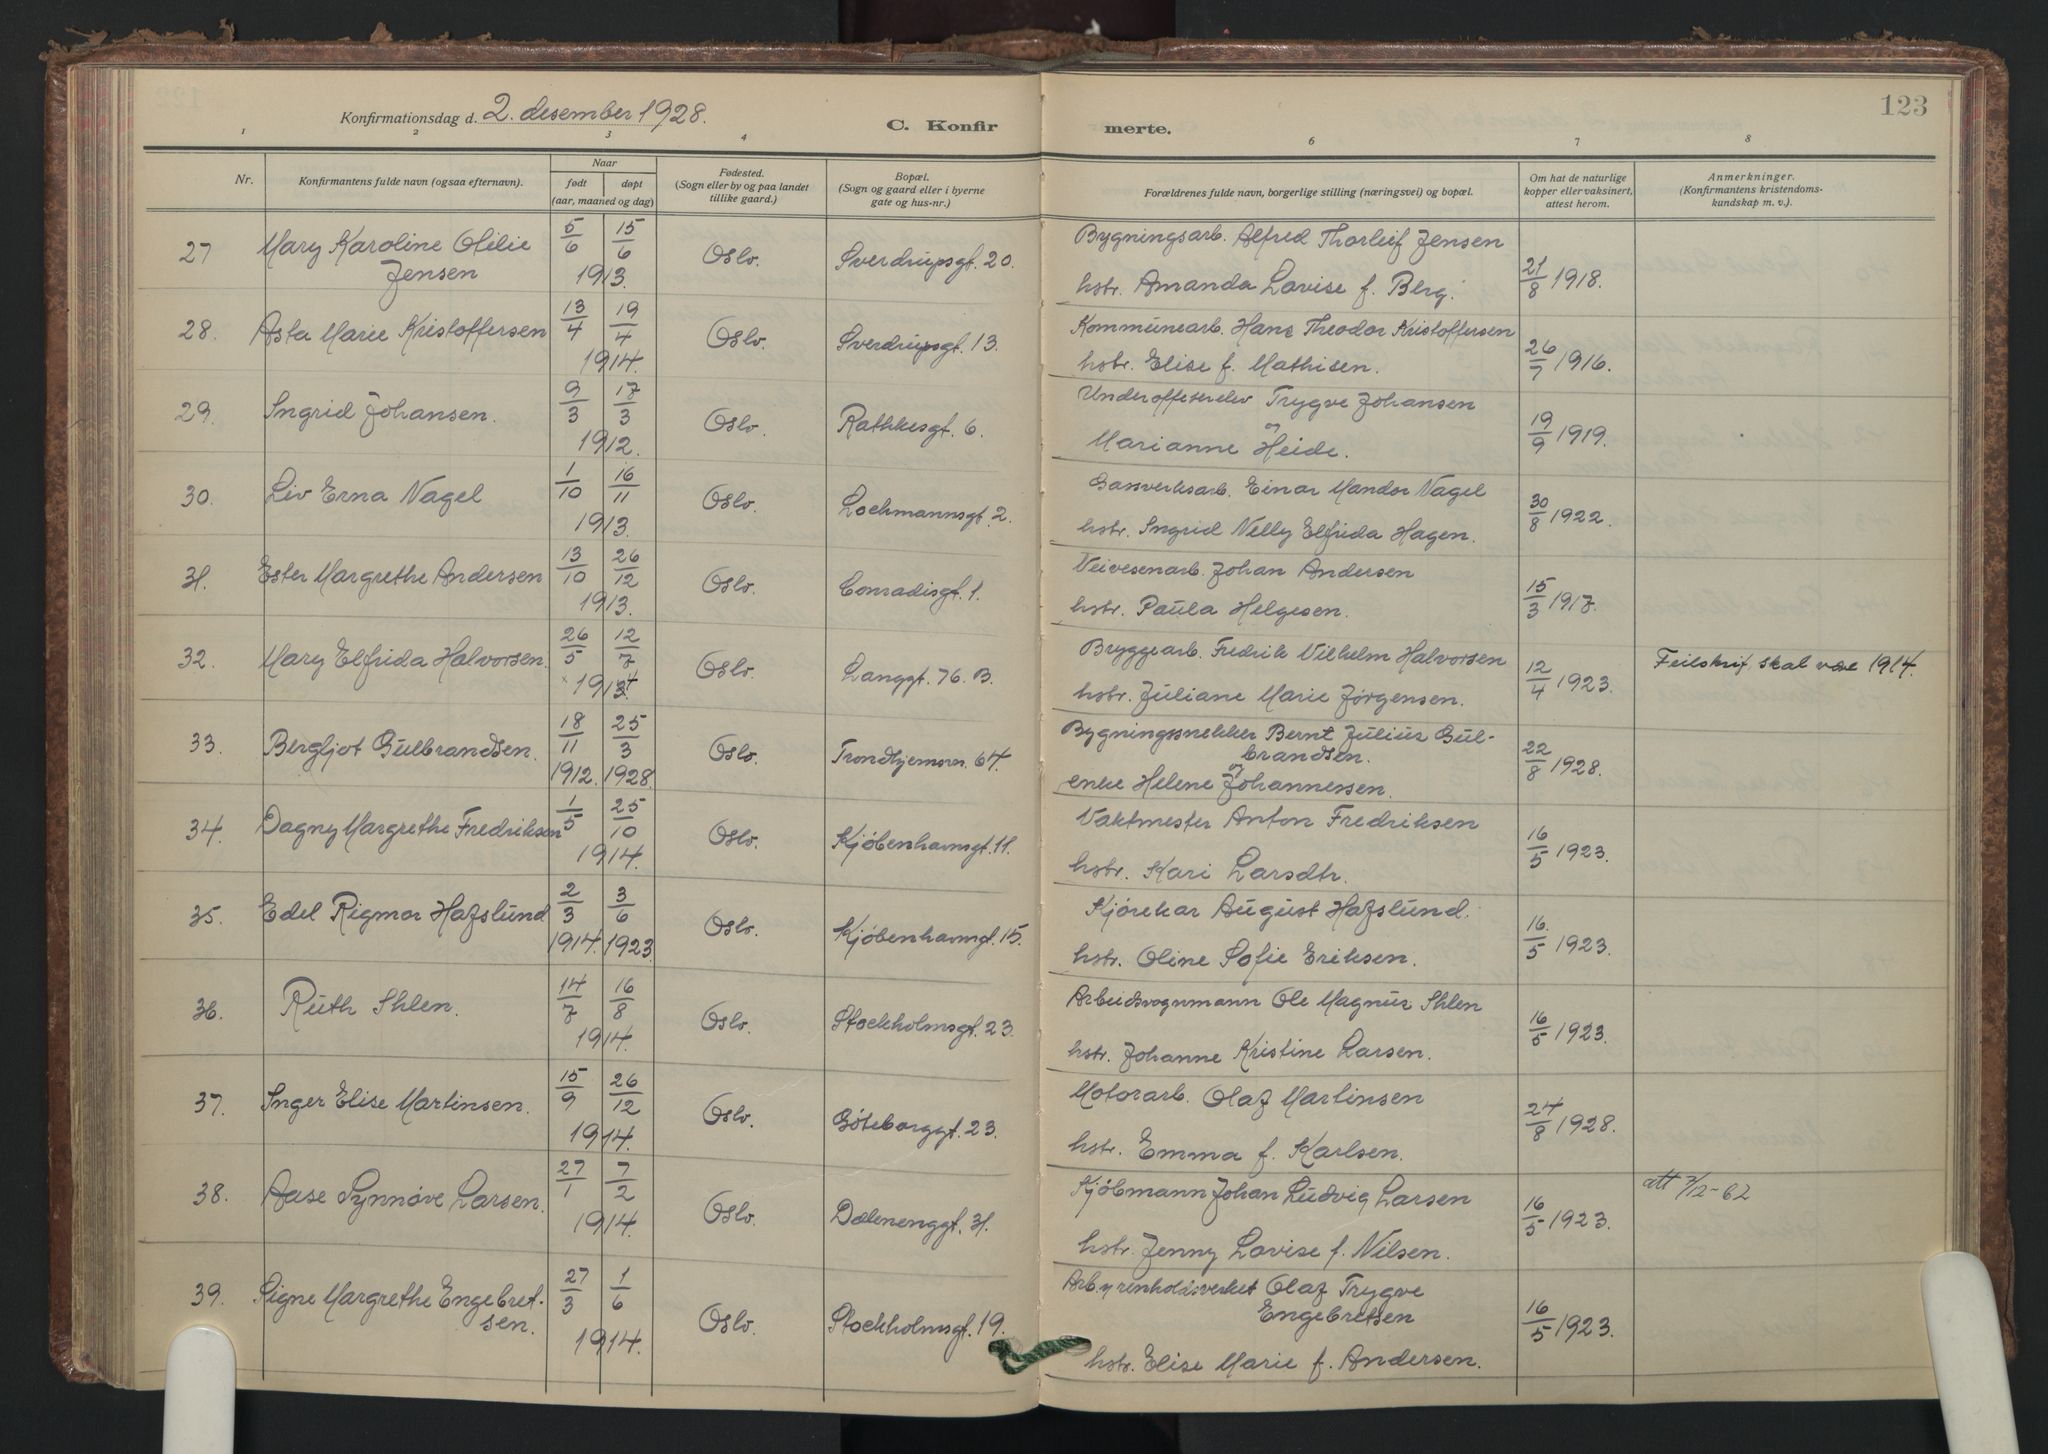 123
Konfirmationsdag d. 2. desember 1928.
C. Konfir
merte.
1 2 3 4 6 7 8
Nr.
Konfirmantens fulde navn (ogsaa efternavn).
Naar
født døpt
(aar, maaned og dag)
Fødested.
(Sogn eller by og paa landet
tillike gaard.)
Bopæl.
(Sogn og gaard eller i byerne
gate og hus-nr.)
Forældrenes fulde navn, borgerlige stilling (næringsvei) og bopæl.
Om hat de naturlige
kopper eller vaksinert,
attest herom.
Anmerkninger.
(Konfirmantens kristendoms-
kundskap m. v.).
27 Mary Karoline Otilie 5/6 15/6 Oslo. Sverdrupsgt. 20. Bygningsarb. Alfred Thorleif Jensen
Jensen 1913. hstr. Amanda Lovise f. Berg. 21/8 1918.
28. Asta Marie Kristoffersen 13/4 19/4 Oslo. Sverdrupsgt. 13. Kommunearb. Hans Theodor Kristoffersen
1914. hstr. Elise f. Mathisen. 26/7 1916.
29. Ingrid Johansen. 9/3 17/3 Oslo. Rathkesgt. 6. Underoffiserelev Trygve Johansen
1912. og Marianne Heide. 19/9 1919.
30. Liv Erna Nagel 1/10 16/11 Oslo. Lochmannsgt. 2. Gassverksarb. Einar Mandor Nagel
1913. hstr. Ingrid Nelly Elfrida Hagen. 30/8 1922.
31. Ester Margrethe Andersen 13/10 26/12 Oslo. Conradisgt. 1. Veivesenarb. Johan Andersen
1913. hstr. Paula Helgesen. 15/3 1917.
32. Mary Elfrida Halvorsen. 26/5 12/7 Oslo. Langgt. 76. B. Bryggearb. Fredrik Vilhelm Halvorsen Feilskrif. skal være 1914.
× 1913. 4 hstr. Juliane Marie Jørgensen. 12/4 1923.
33. Bergljot Gulbrandsen. 18/11 25/3 Oslo. Trondhjemsvn. 64. Bygningssnekker Bernt Julius Gul-
brandsen.
1912. 1928. og enke Helene Johannessen. 22/8 1928.
34. Dagny Margrethe Fredriksen 1/5 25/10 Oslo. Kjøbenhavnsgt. 11. Vaktmester Anton Fredriksen
1914. hstr. Kari Larsdtr. 16/5 1923.
35. Edel Rigmor Hafslund 2/3 3/6 Oslo. Kjøbenhavnsgt. 15. Kjørekar August Hafslund.
1914. 1923. hstr. Oline Sofie Eriksen. 16/5 1923.
36. Ruth Ihlen. 14/7 16/8 Oslo. Stockholmsgt. 23. Arbeidsvognmann Ole Magnus Ihlen
1914. hstr. Johanne Kristine Larsen. 16/5 1923.
37. Inger Elise Martinsen. 15/9 26/12 Oslo. Göteborggt. 23. Motorarb. Olaf Martinsen
1914. hstr. Emma f. Karlsen. 24/8 1928.
38. Aase Synnøve Larsen. 27/1 7/2 Oslo. Dælenenggt. 31. Kjøbmann Johan Ludvig Larsen att 7/12-62
1914. hstr. Jenny Lovise f. Nilsen. 16/5 1923.
39. Signe Margrethe Engebret- 27/3 1/6 Oslo. Stockholmsgt. 19. Arb. v renholdsverket Olaf Trygve
sen. Engebretsen 16/5 1923.
1914. hstr. Elise Marie f. Andersen.